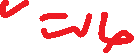 حالت